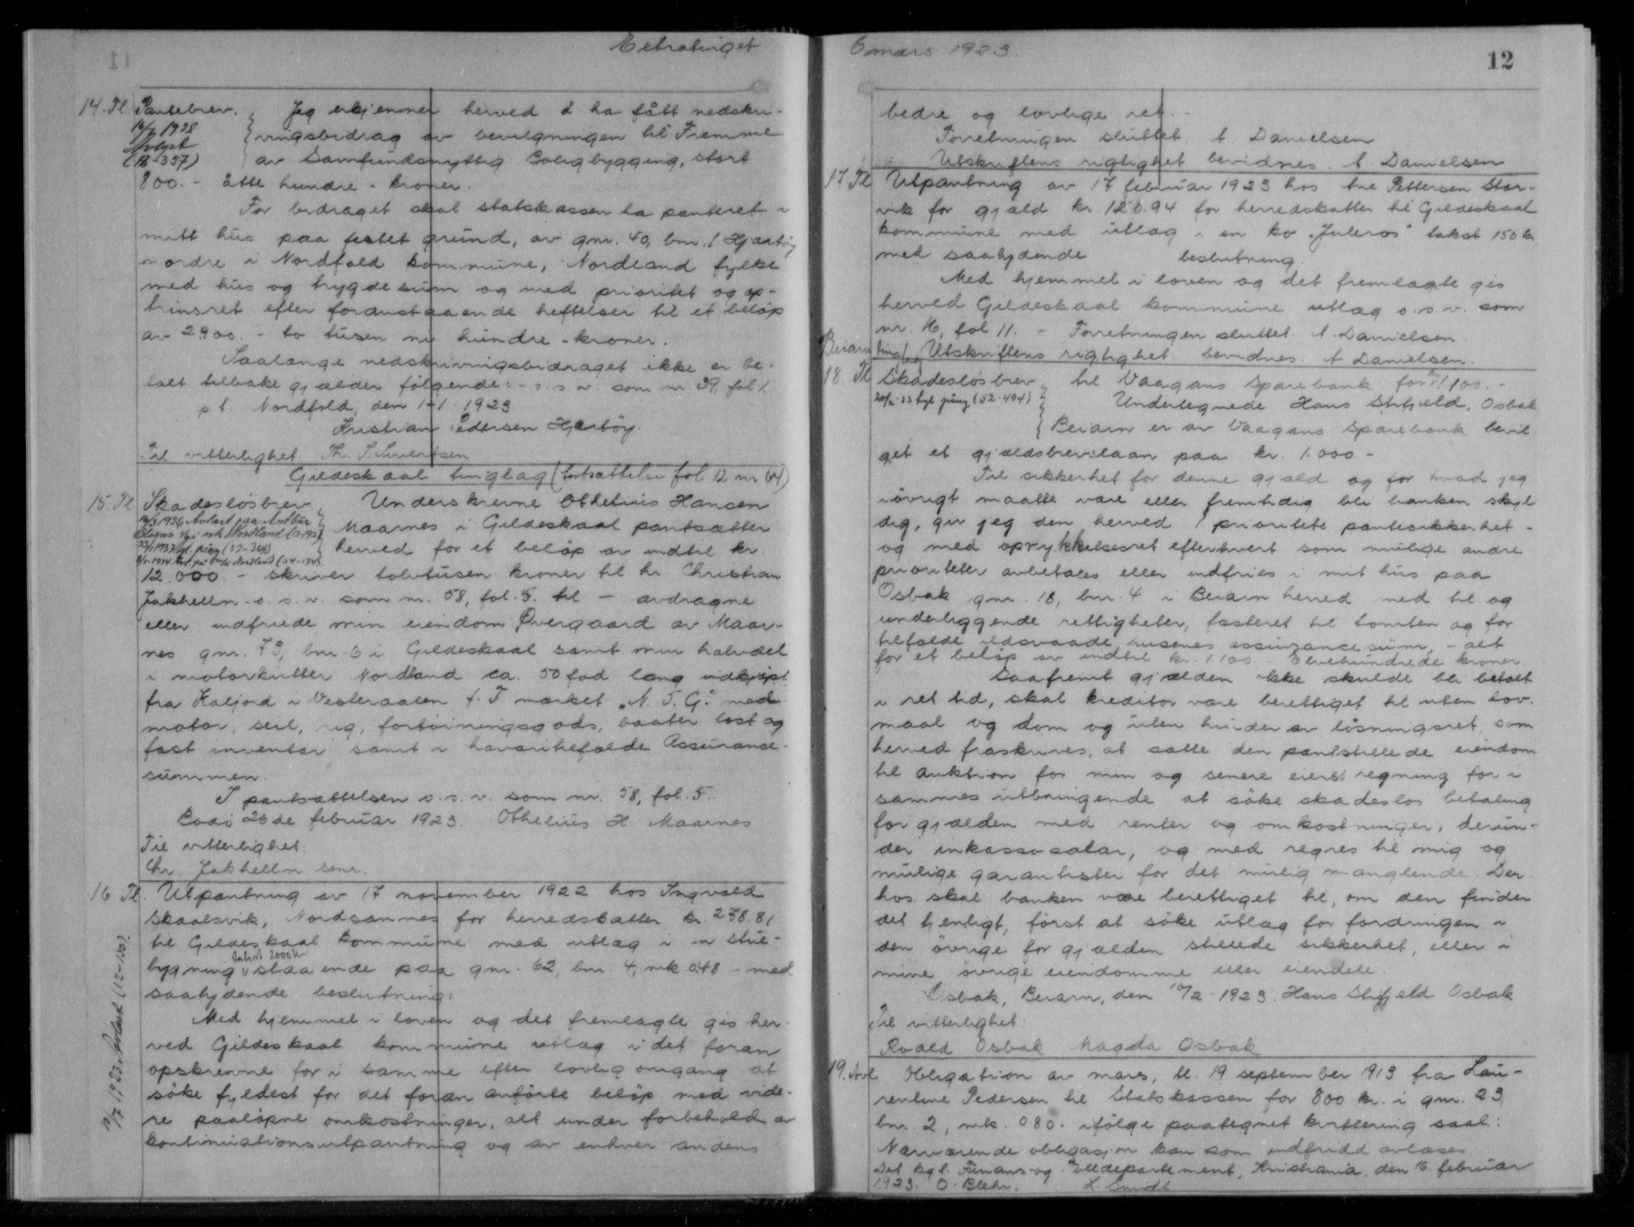 Extratinget
14. Tl Pantebrev. Jeg erkjenner herved å ha fått nedskri-
16/7 1928 vningsbidrag av bevilgningen til Fremme
Avlyst
(B-337) av Samfundsnyttig Boligbygging, stort
800.- åtte hundre - kroner.
For bidraget skal statskassen ha panteret i
mitt hus paa festet grund, av gnr. 40, bnr. 1 Hjartöy
nordre i Nordfold kommune, Nordland fylke
med hus og brygdesum og med prioritet og op-
trinsret efter foranstaaende heftelser til et beløp
av 2900.- to tusen ni hundre - kroner.
Saalange nedskrivningsbidraget ikke er be-
talt tilbake gjælder følgende: - o.s.v. som nr. 39, fol 1.
p.t. Nordfold, den 1-1-1923
Kristian Pedersen Hjartöy
Til vitterlighet Th. Sivertsen
Gildeskaal tinglag (fortsættelse fol 12 nr 64)
15. Tl Skadesløsbrev Underskrevne Othelius Hansen
Maarnes i Gildeskaal pantsætter
herved for et beløp av indtil kr
12.000.- skriver tolvtusen kroner til hr. Christian
Jakhelln - o.s.v. som nr. 58, fol. 5. til - avdragne
eller indfriede min eiendom Övergaard av Maar-
nes gnr. 79, bnr. 6 i Gildeskaal samt min halvdel
i motorkutter Nordland ca. 50 fod lang indkjøpt
fra Kaljord i Vesteraalen f. T mærket "N. 5. G." med
motor, seil, rig, fortöiningsgods, baater löst og
fast inventar samt i havaritilfælde Assurance-
summen.
I pantsættelsen o.s.v. som nr. 58, fol. 5.
Bodö 20de februar 1923. Othelius H. Maarnes
Til vitterlighet:
Chr. Jakhelln senr.
16 Tl. Utpantning av 17 november 1922 hos Ingvald
Skaalsvik, Nordsannes for herredskatter kr. 278.81
til Gildeskaal kommune med utlæg i en stue-
takst 2000 kr
bygning staaende paa gnr. 62, bnr. 4, mk 0.48 - med
saalydende beslutning:
11/7 1923. Avlæst (12-150).
Med hjemmel i loven og det fremlagte gis her-
ved Gildeskaal kommune utlæg i det foran
opskrevne for i samme efter lovlig omgang at
söke fyldest for det foran anførte beløp med vide-
re paaløpne omkostninger, alt under forbehold av
kontinuationsutpantning og av enhver andens
6 mars 1923.
12
bedre og lovlige ret. -
Forretningen sluttet A Danielsen
Utskriftens rigtighet bevidnes. A Danielsen
17. Tl Utpantning av 17 februar 1923 hos Ane Pettersen Stor-
vik for gjæld kr. 120.94 for herredskatter til Gildeskaal
kommune med utlæg i en ko "Juleros" takst 150 kr
med saalydende beslutning.
Med hjemmel i loven og det fremlagte gis
herved Gildeskaal kommune utlæg o.s.v. som
nr. 16, fol 11. - Forretningen sluttet A. Danielsen.
Beiarn tinglag Utskriftens rigtighet bevidnes A Danielsen.
18. Tl Skadesløsbrev til Vaagans Sparebank for kr 1100.-
Undertegnede Hans Stifjeld, Osbak
Beiarn er av Vaagans Sparebank bevil-
get et gjældsbrevslaan paa kr. 1.000.-
Til sikkerhet for denne gjæld og for hvad jeg
iövrigt maatte være eller fremtidig bli banken skyl-
dig, gir jeg den herved 1 prioritets pantesikkerhet -
og med oprykkelsesret efterhvert som mulige andre
prioriteter avbetales eller indfries i mit hus paa
Osbak gnr. 18, bnr. 4 i Beiarn herred med til og
underliggende rettigheter, fæsteret til tomten og for
tilfælde ildsvaade, husenes assurancesum, - alt
for et beløp av indtil kr. 1100 - Elvehundrede kroner
Saafremt gjælden ikke skulde bli betalt
i ret tid, skal kreditor være berettiget til uten lov-
maal og dom og uten hinder av løsningsret, som
herved fraskrives, at sætte den pantstillede eiendom
til auktion for min og senere eiers regning for i
sammes utbringende at söke skadeslös betaling
for gjælden med renter og omkostninger, derun-
der inkassosalær, og med regres til mig og
mulige garantister for det mulig manglende. Der-
hos skal banken være berettiget til, om den finder
det tjenligt, först at söke utlæg for fordringen i
den övrige for gjælden stillede sikkerhet, eller i
mine övrige eiendomme eller eiendele.
Osbak, Beiarn, den 10/2-1923. Hans Stifjeld Osbak
Til vitterlighet:
Roald Osbak Magda Osbak
19. Avl Obligation av mars, tl. 19 september 1913 fra Lau-
rentine Pedersen til Statskassen for 800 kr. i gnr. 23,
bnr. 2, mk. 0.80. ifölge paategnet kvittering saal:
Nærværende obligasjon kan som indfridd avlæses
Det kgl. Finans- og Tolldepartement, Kristiania, den 16 februar
1923. O. Blehr.